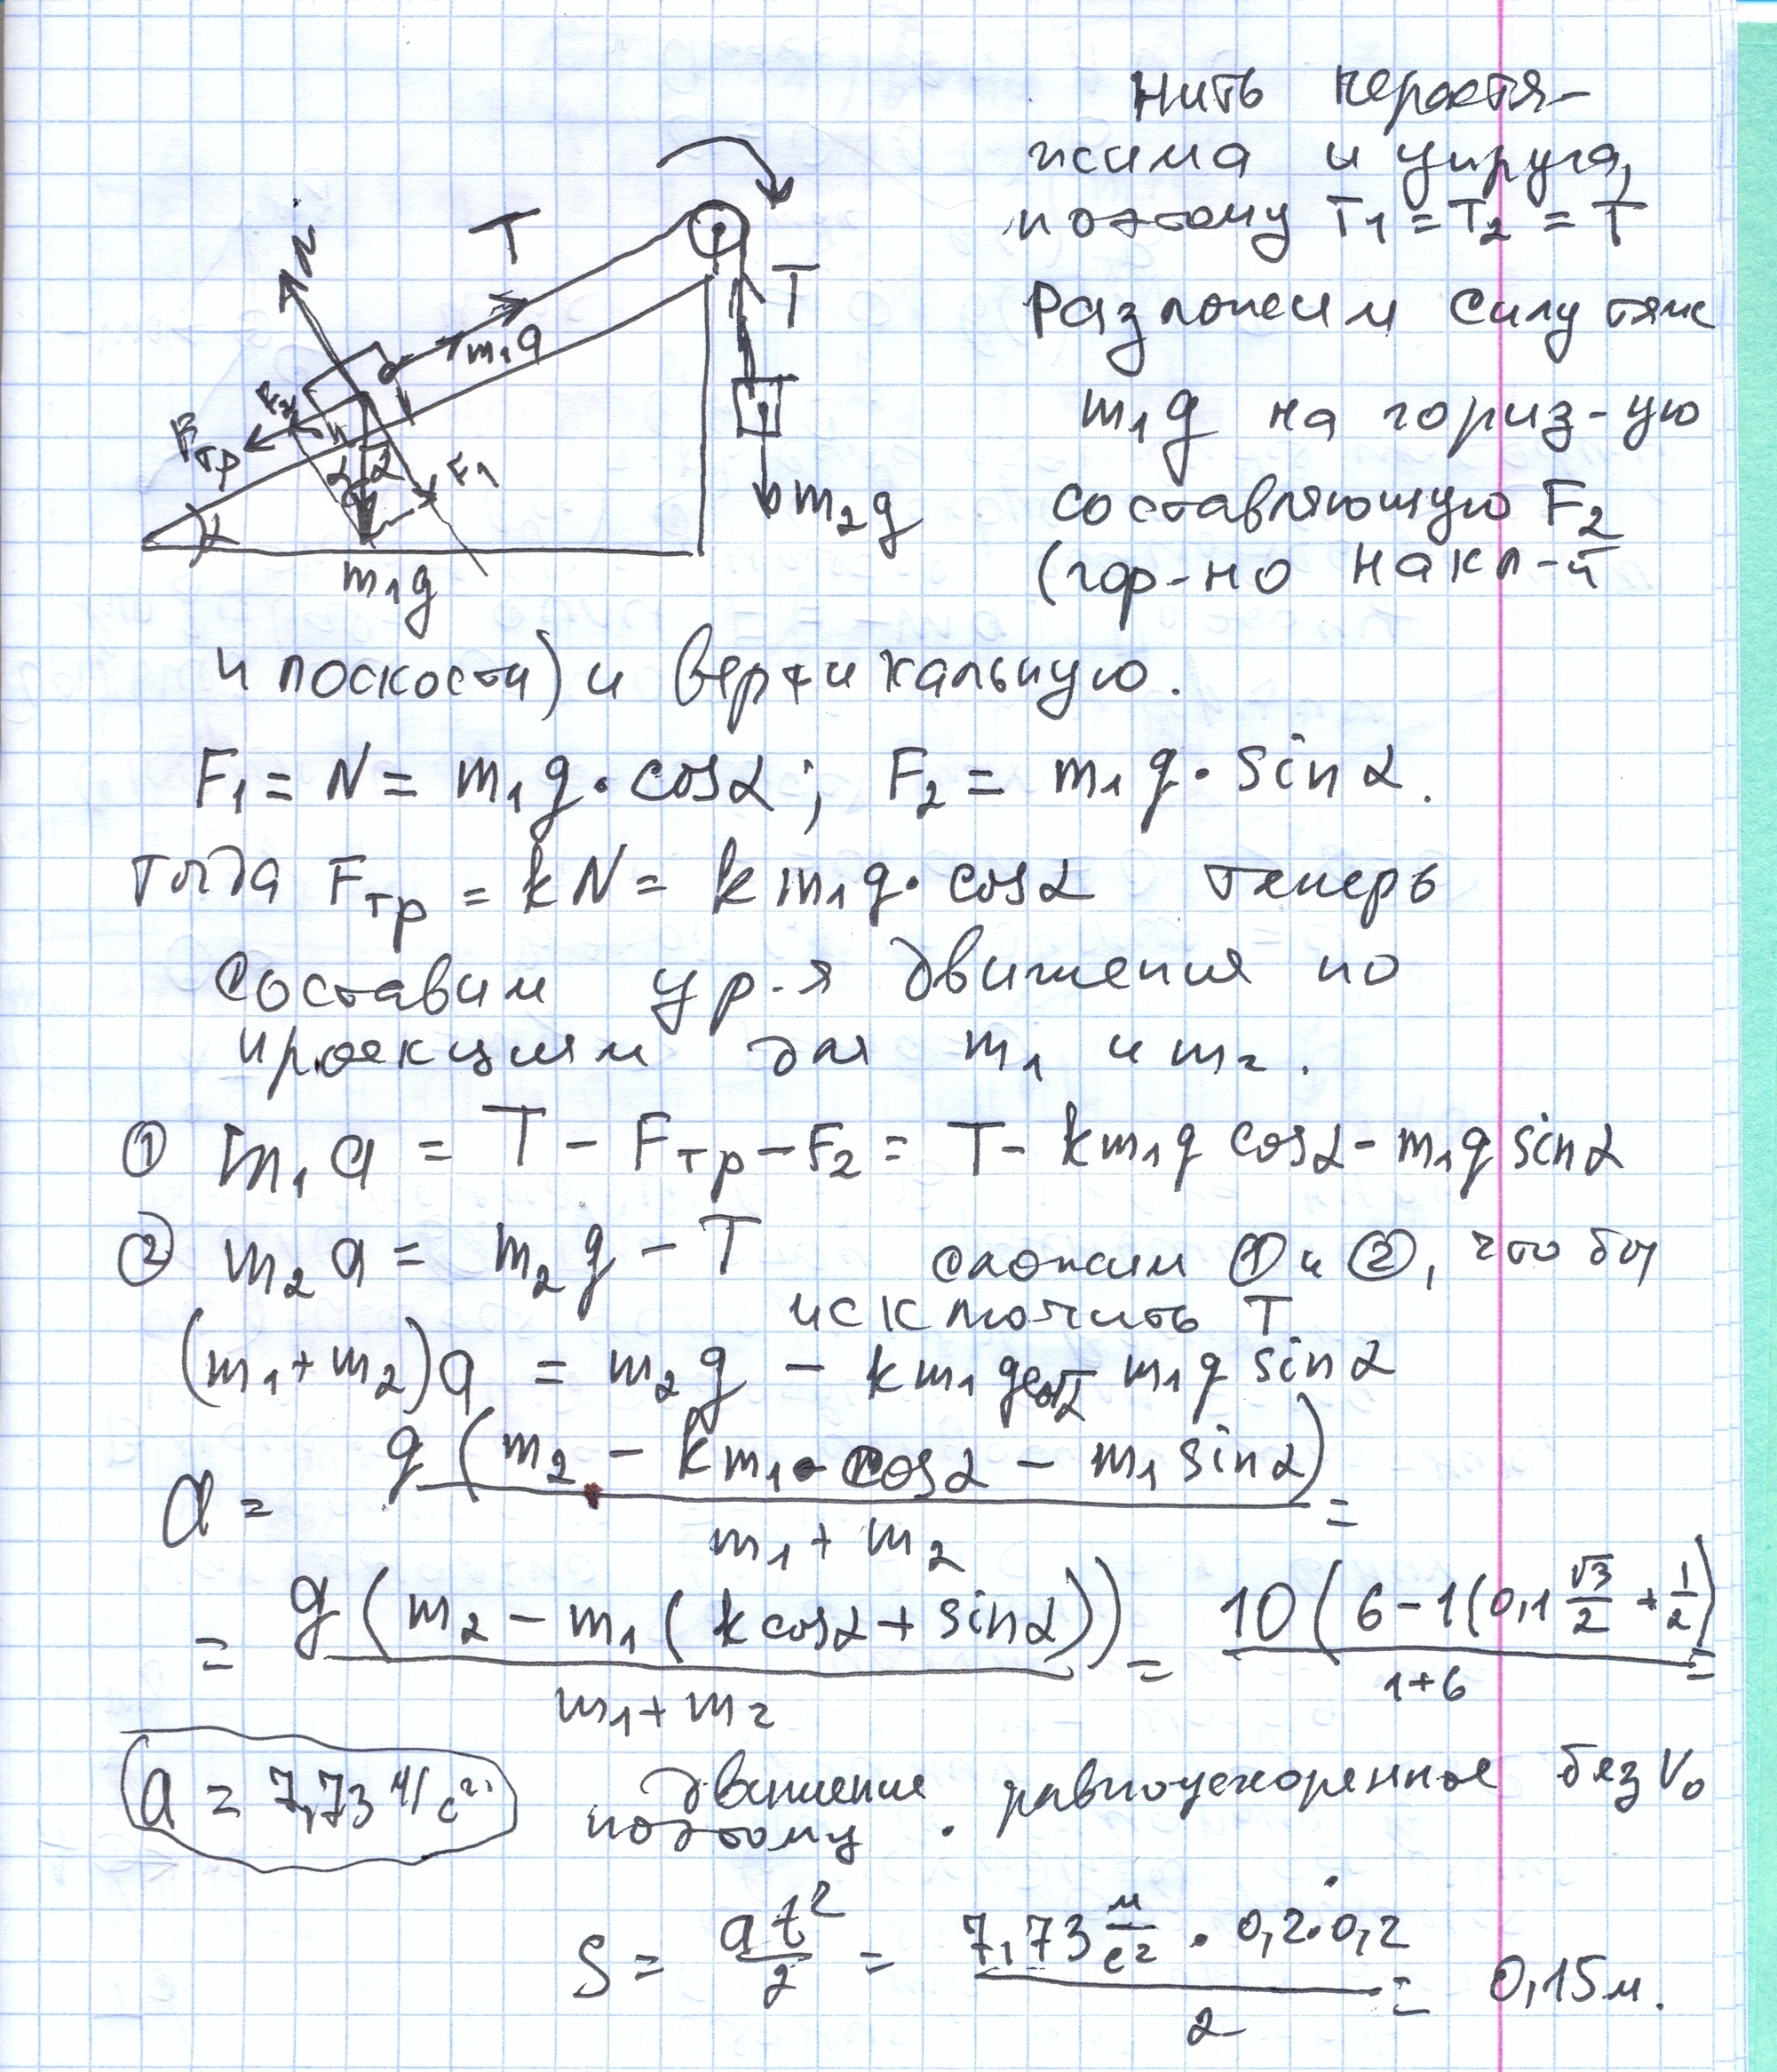 Нить нерастя-
жима и упруга,
поэтому T₁ = T₂ = T
Разложим силу тяж
m₁g на гориз-ую
составляющую F₂
(гор-но накл-й
N
T
T
m₁a
F₂
Fтр
α α
F₁
α
m₂g
m₁g
и плоскости) и вертикальную.
F₁ = N = m₁g · cosα ; F₂ = m₁g · sinα.
тогда Fтр = kN = km₁g · cosα теперь
составим ур-я движения по
проекциям для m₁ и m₂.
① m₁a = T - Fтр - F₂ = T - km₁g cosα - m₁g sinα
② m₂a = m₂g - T сложим ① и ②, что бы
исключить T
(m₁+m₂)a = m₂g - km₁g cosα - m₁g sinα
a = g(m₂ - km₁ · cosα - m₁ sinα) / m₁ + m₂ =
= g(m₂ - m₁(k cosα + sinα)) / m₁ + m₂ = 10(6-1(0,1 √3/2 + 1/2) / 1+6 =
a = 7,73 м/с² движение равноускоренное без V₀
поэтому
S = at²/2 = 7,73 м/с² · 0,2·0,2 / 2 = 0,15м.